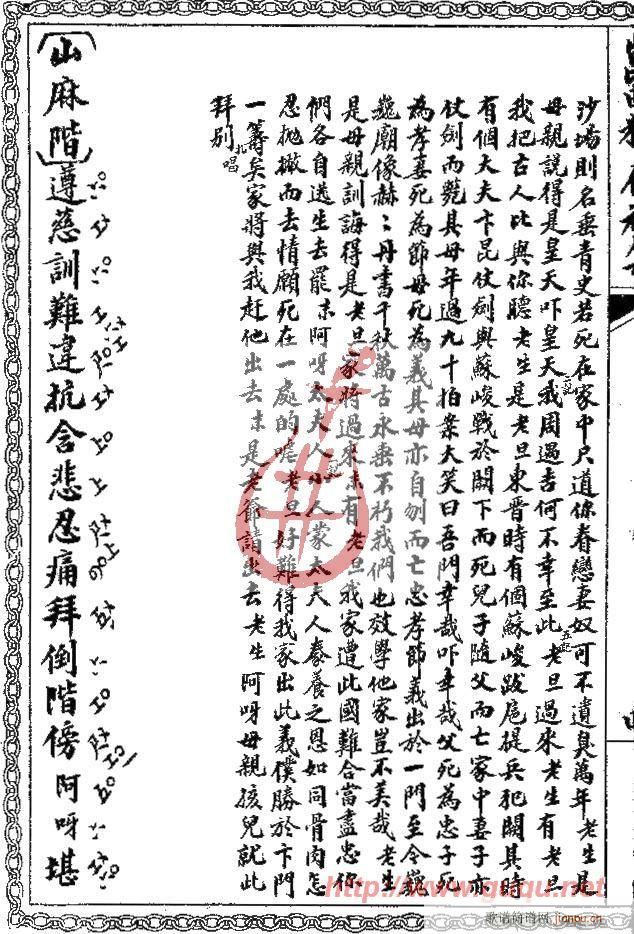 沙場則名垂青史若死在家中只道你眷戀妻奴可不遺臭萬年老生是
母親說得是皇天吓皇天我周遇吉何不幸至此老旦過來老生有老旦
我把古人比與你聽老生是老旦東晉時有個蘇峻跋扈提兵犯闕其時
有個大夫卞昆仗劍與蘇峻戰於闕下而死兒子隨父而亡家中妻子亦
仗劍而薨其母年過九十拍案大笑曰吾門幸哉吓幸哉父死為忠子死
為孝妻死為節母死為義其母亦自刎而亡忠孝節義出於一門至今巍
巍廟像赫:丹書千秋萬古永垂不朽我們也效學他家豈不美哉老生
是母親訓誨得是老旦家將過來末有老旦我家遭此國難合當盡忠你
們各自逃生去罷末阿呀太夫人小人蒙太夫人豢養之恩如同骨肉怎
忍拋撇而去情願死在一處的嘘老旦好難得我家出此義僕勝於卞門
一籌矣家將與我赶他出去末是老爺請出去老生阿呀母親孩兒就此
拜別 唱
(山麻階)遵慈訓難違抗含悲忍痛拜倒階傍阿呀堪
http://www.guqu.net
歌谱简谱网
jianpu.cn